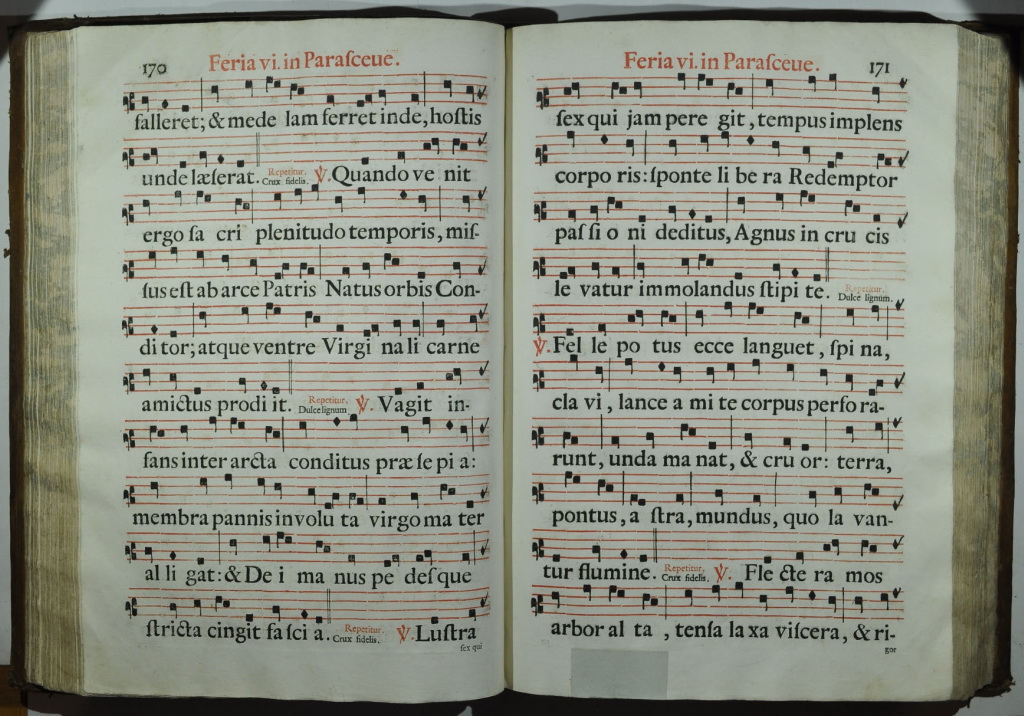 170 Feria vi. in Paraſceue.
falleret; & mede lam ferret inde, hoſtis
unde læſerat. Repetitur. Crux fidelis. ℣. Quando ve nit
ergo ſa cri plenitudo temporis, miſ-
ſus eſt ab arce Patris Natus orbis Con-
di tor; atque ventre Virgi nali carne
amictus prodi it. Repetitur. Dulce lignum. ℣. Vagit in-
fans inter arcta conditus præ ſe pi a:
membra pannis involu ta virgo ma ter
al li gat: & De i ma nus pe deſque
ſtricta cingit fa ſci a. Repetitur. Crux fidelis. ℣. Luſtra
ſex qui
Feria vi. in Paraſceue. 171
ſex qui jam pere git, tempus implens
corpo ris: ſponte li be ra Redemptor
paſ ſi o ni deditus, Agnus in cru cis
le vatur immolandus ſtipi te. Repetitur. Dulce lignum.
℣. Fel le po tus ecce languet, ſpi na,
cla vi, lance a mi te corpus perfo ra-
runt, unda ma nat, & cru or: terra,
pontus, a ſtra, mundus, quo la van-
tur flumine. Repetitur. Crux fidelis. ℣. Fle cte ra mos
arbor al ta, tenſa la xa viſcera, & ri-
gor